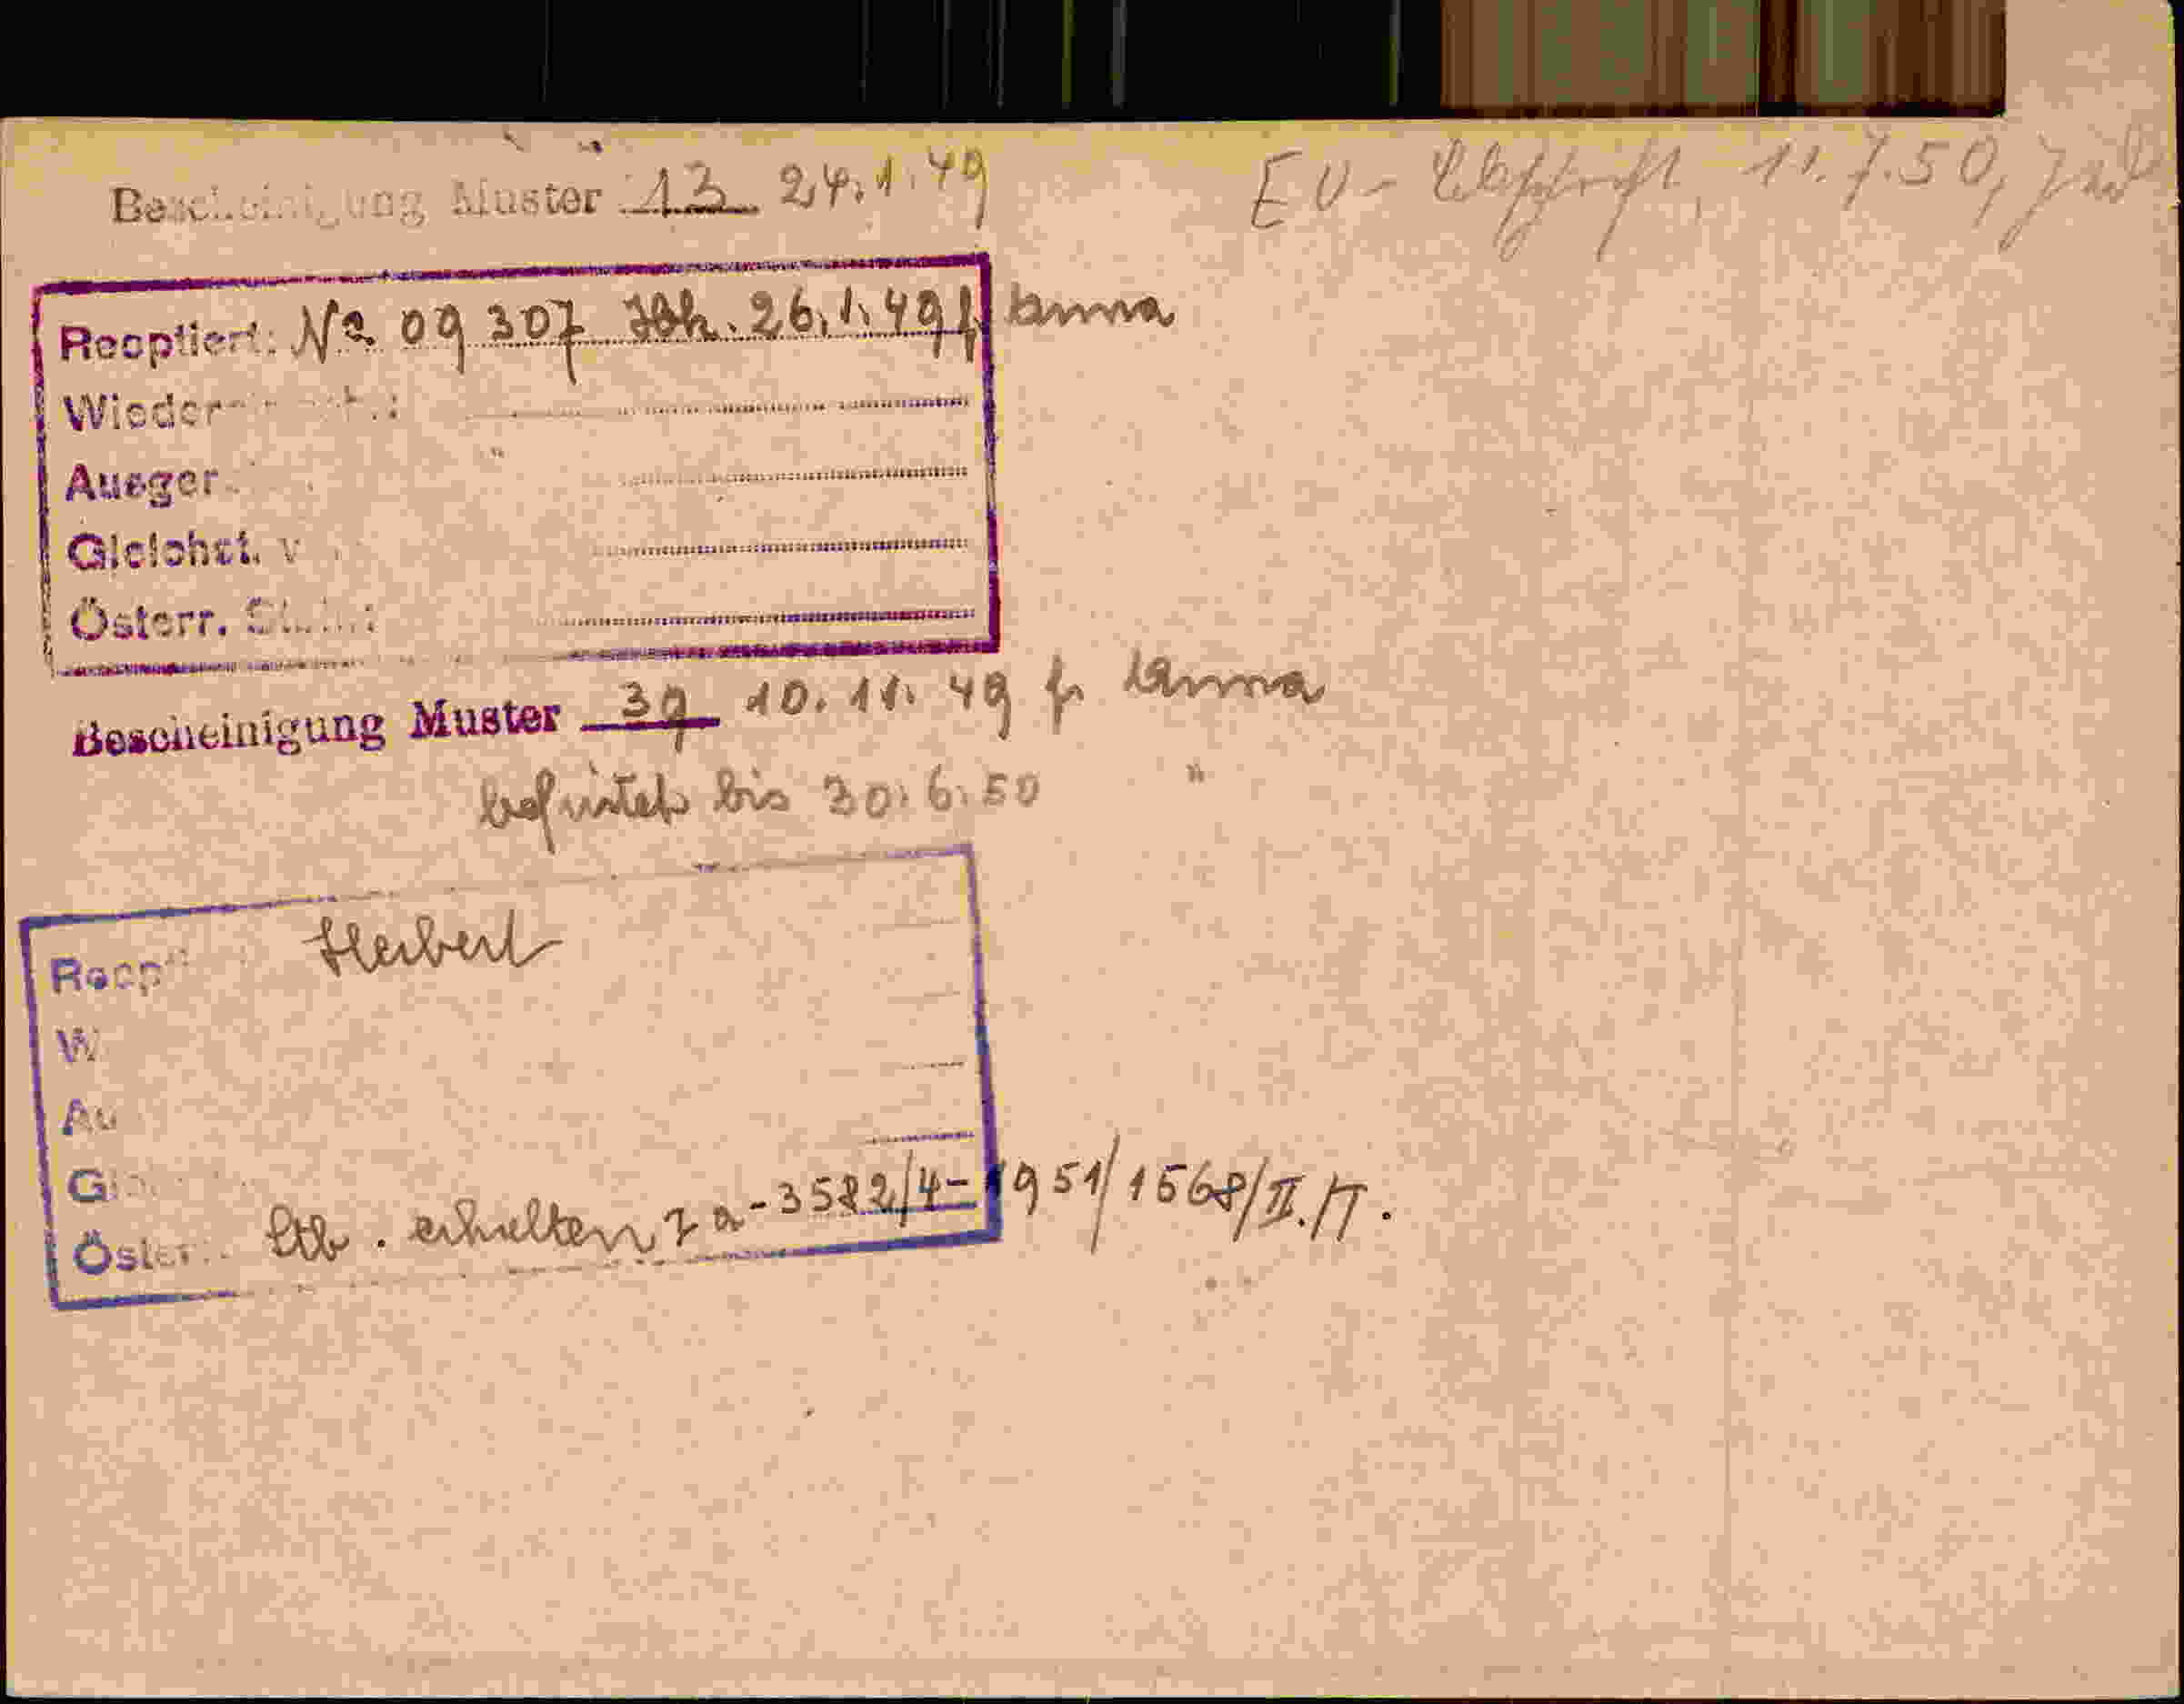 Bescheinigung Muster 13 24.1.49
EV- Abschrift, 11.7.50,
Reoptiert: No 09 307 26.1.49 f. Anna
Wieder
Ausger
Gleichst. v
Österr.
Bescheinigung Muster 39 10.11.49 f. Anna
befristet bis 30.6.50 "
Herbert
Reopt
W
Au
G
Öster. erhalten Z a-3582/4-1951/1568/II./T.